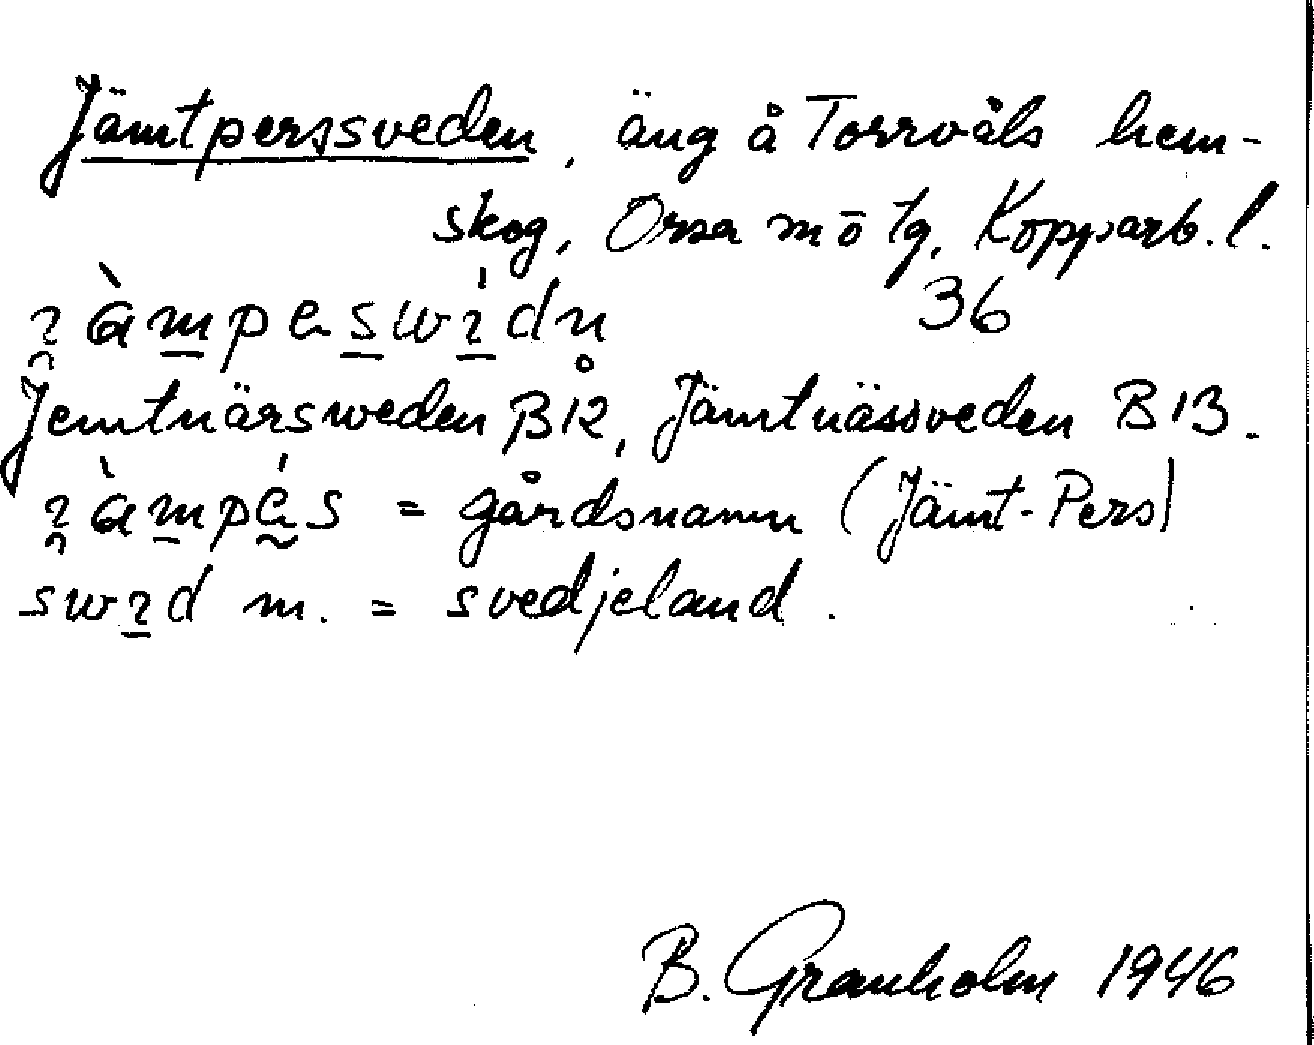 Jämtperssveden, äng å Torrvåls hem-
skog, Orsa mō tg, Kopparb. l.
36
Jemtnärsweden B12, Jämtnässveden B13.
= gårdsnamn (Jämt-Pers)
m. = svedjeland.
B. Granholm 1946